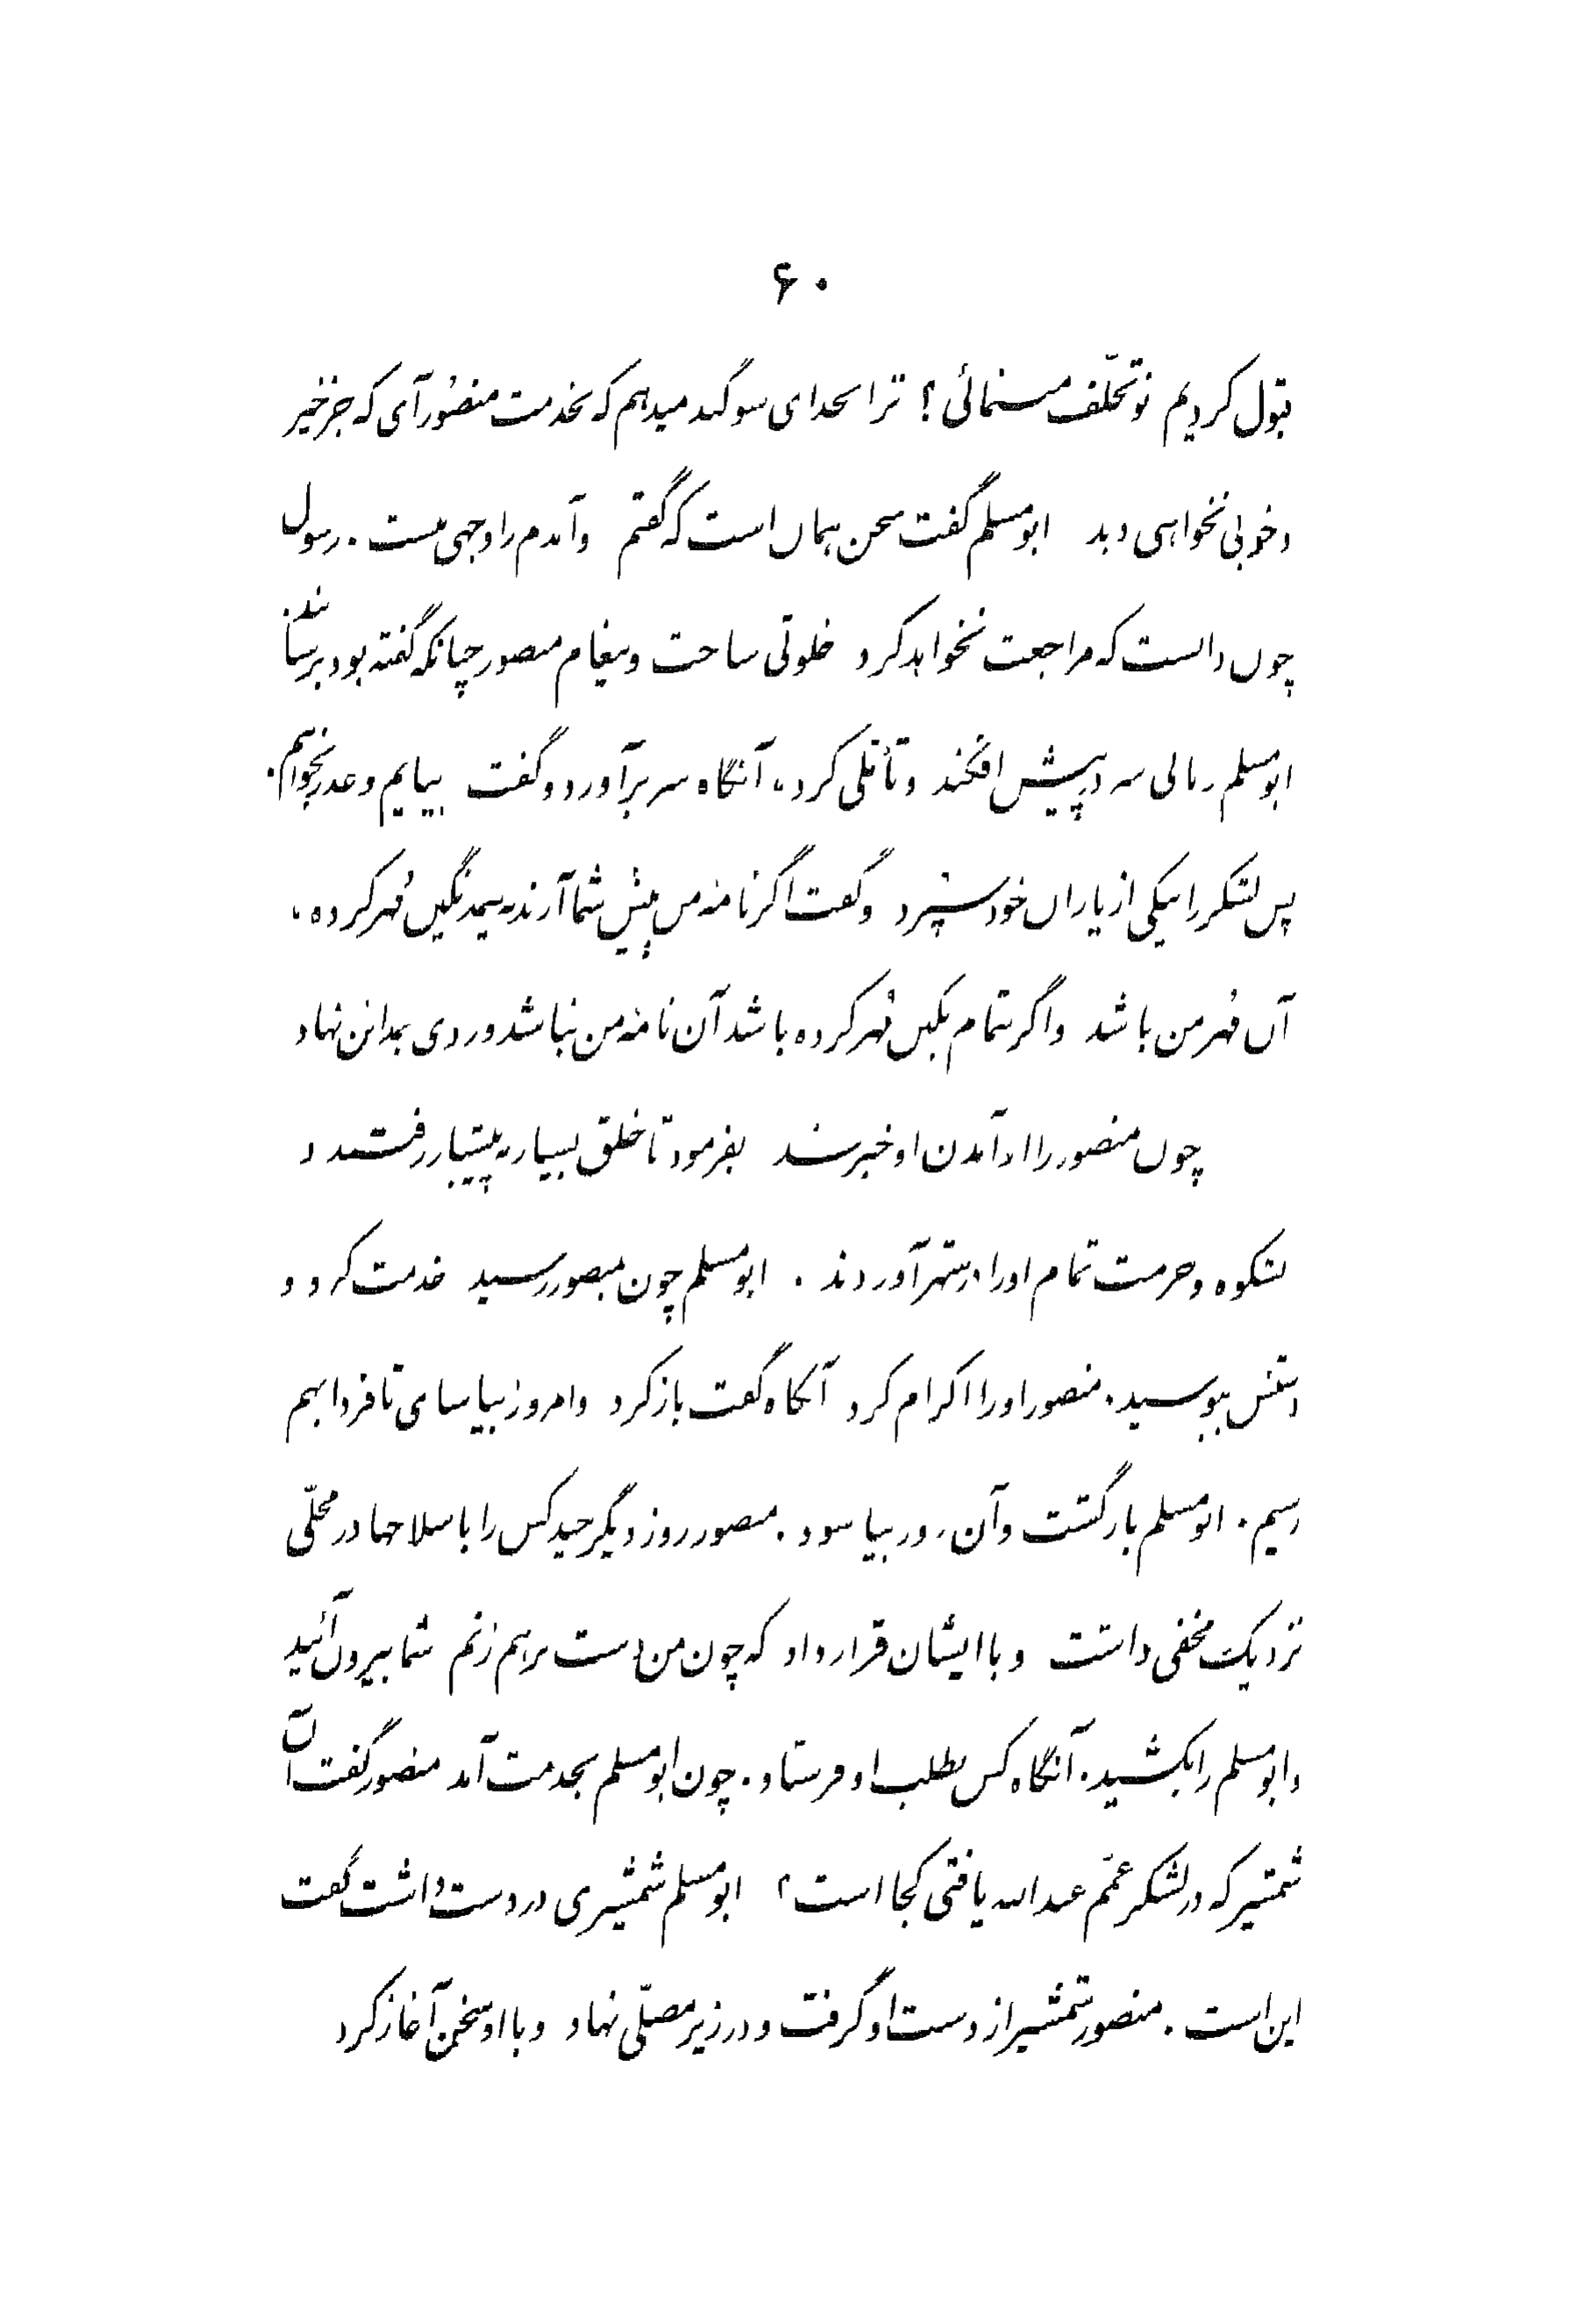 ۶۰
قبول کردیم تو تخلّف مینمائی؟ ترا بخدای سوگند میدهم که بخدمت منصور آی که جز خیر
و خوبی نخواهی دید ابومسلم گفت سخن همان است که گفتم و آمدم را وجهی نیست. رسول
چون دانست که مراجعت نخواهد کرد خلوتی ساخت و پیغام منصور چنانکه گفته بود برسانید.
ابومسلم زمانی سر در پیش افکند و تأملی کرد، آنگاه سر برآورد و گفت بیایم و عذر بخواهم.
پس لشکر را بیکی از یاران خود سپرد و گفت اگر نامهٔ من پیش شما آرند به نیمه نگین مُهر کرده،
آن مُهر من باشد و اگر بتمام نگین مُهر کرده باشد آن نامهٔ من نباشد و روی بمداین نهاد
چون منصور را از آمدن او خبر شد بفرمود تا خلق بسیار به پیشباز رفتند و
بشکوه و حرمت تمام او را در شهر آوردند. ابومسلم چون بمنصور رسید خدمت کرد و
دستش ببوسید. منصور او را اکرام کرد آنگاه گفت بازگرد و امروز بیاسای تا فردا بهم
رسیم. ابومسلم بازگشت و آن روز بیاسود. منصور روز دیگر چند کس را با سلاحها در محلّی
نزدیک مخفی داشت و با ایشان قرار داد که چون من دست برهم زنم شما بیرون آئید
و ابومسلم را بکشید. آنگاه کس بطلب او فرستاد. چون ابومسلم بخدمت آمد منصور گفت آن
شمشیر که در لشکر عمّم عبدالله یافتی کجا است؟ ابومسلم شمشیری در دست داشت گفت
این است. منصور شمشیر از دست او گرفت و در زیر مصلّی نهاد و با او سخن آغاز کرد